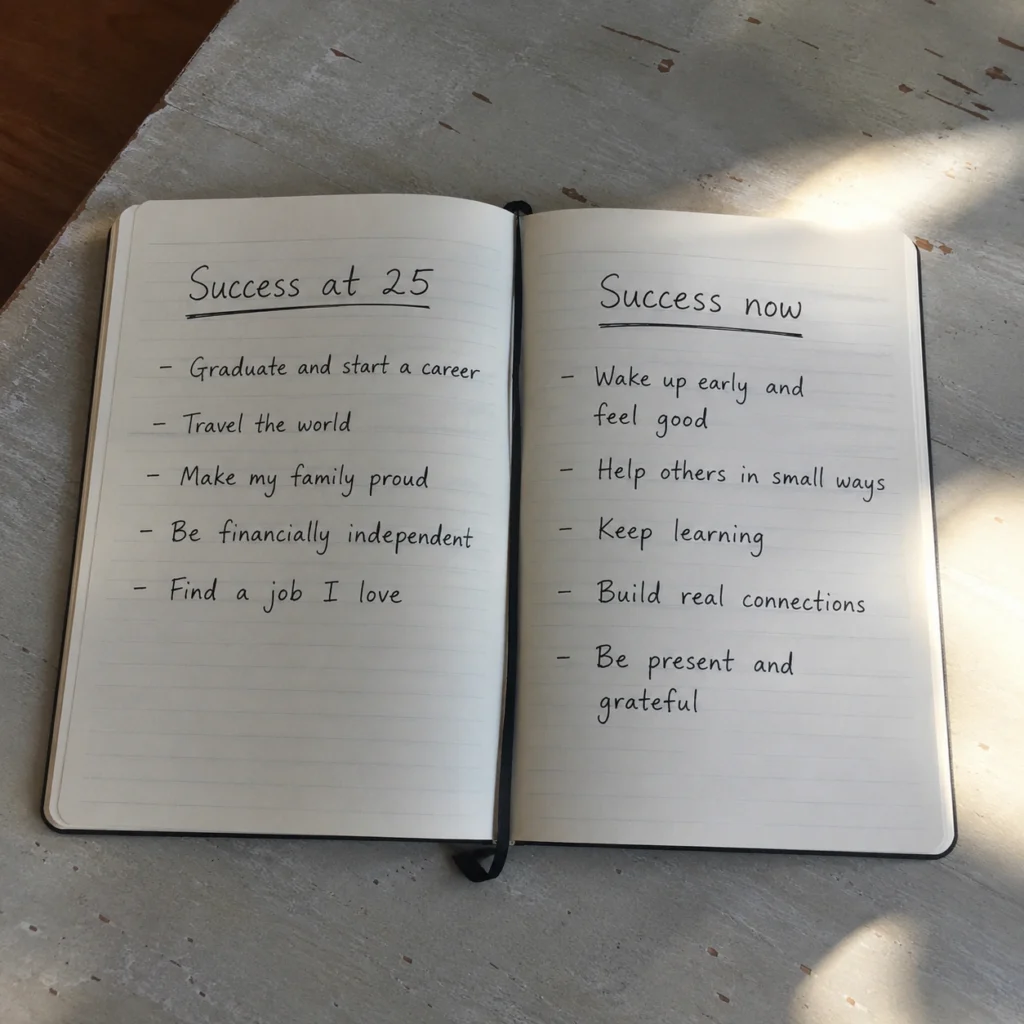 Success at 25
- Graduate and start a career
- Travel the world
- Make my family proud
- Be financially independent
- Find a job I love
Success now
- Wake up early and
feel good
- Help others in small ways
- Keep learning
- Build real connections
- Be present and
grateful